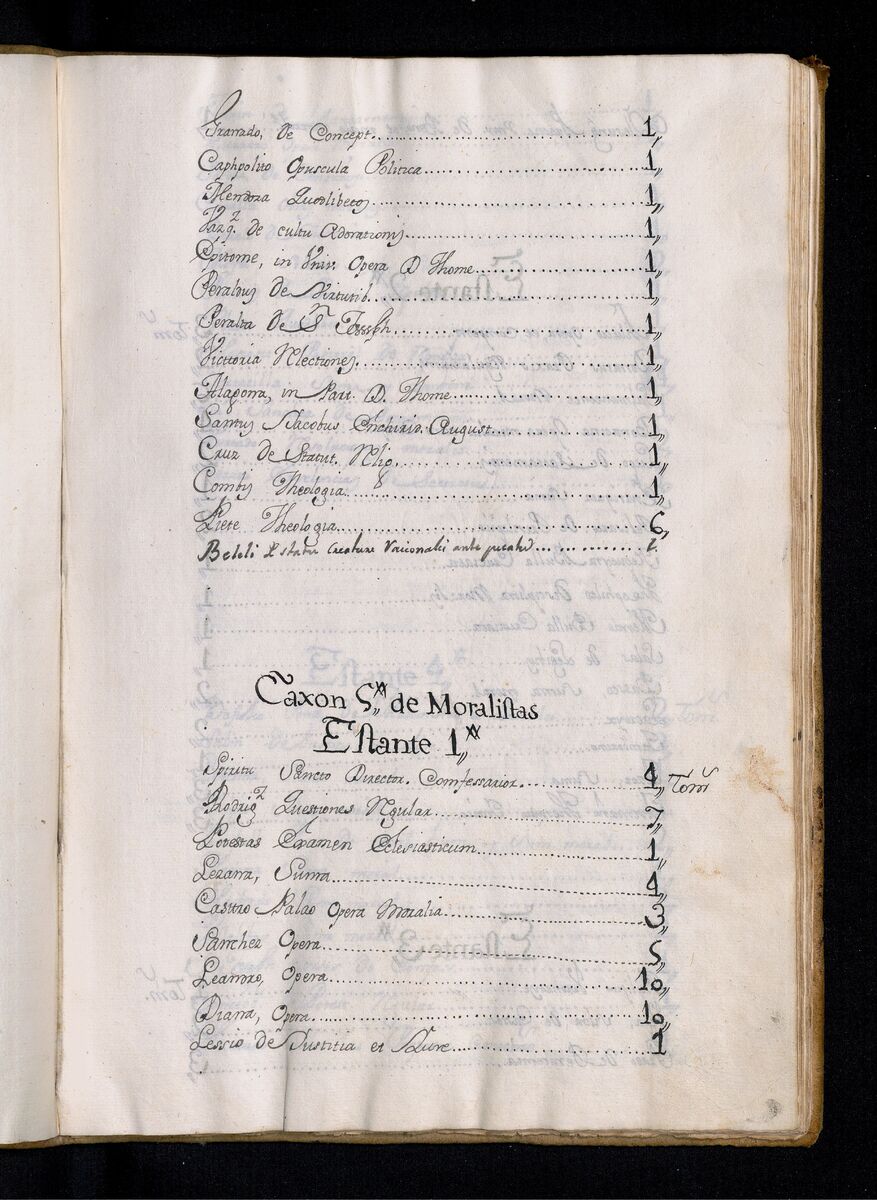 Granado, de Concept. 1,,
Caphpolito Opuscula Politica 1,,
Mendoza Quodlibetos 1,,
Vazqz de cultu Adorationis 1,,
Epitome, in Univ. Opera D Thome 1,,
Peraldus de Virtutib. 1,,
Peralta de Sn Joseph 1,,
Victoria Rlectiones 1,,
Alagona, in Part. D. Thome 1,,
Santus Jacobus Enchirid. August. 1,,
Cruz de Statut. Rlig. 1,,
Combis Theologia 1,,
Liete Theologia 6,,
Beleli statu Creature Racionalis ante 1.
Caxon 5,, de Moralistas
Estante 1,,
Spiritu Sancto Director. Comfessarior. 4,, Toms
Rodrigz Questiones Rgular 7,,
Potestas Examen Eclesiasticum 1,,
Lezana, Suma 4,,
Castro Palao Opera Moralia 3,,
Sanchez Opera 5,,
Leandro, Opera 10,,
Diana, Opera 10,,
Lessio de Justitia et Jure 1